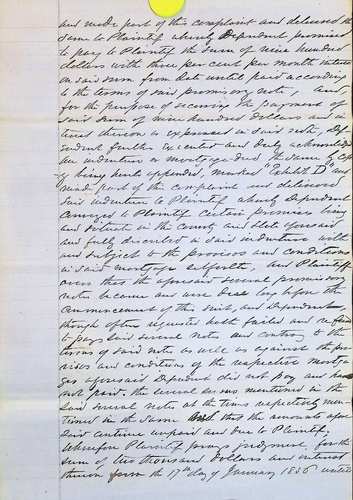 and made part of this complaint and delivered the
same to Plaintiff whereby Defendant promised
to pay to Plaintiff the sum of nine hundred
dollars with three per cent per month interest
on said sum from date until paid according
to the terms of said promissory note, And,
for the purpose of securing the payment of
said sum of nine hundred dollars and in
terest thereon as expressed in said note, Def
endant further executed and duly acknowledged
an indenture or mortgage deed the same a copy
being hereto appended, marked "Exhibit D" and
made part of this complaint and delivered
said indenture to Plaintiff whereby Defendant
conveyed to Plaintiff certain premises lying
and situate in the county and State aforesaid
and fully described in said indenture with
and subject to the provisos and conditions
in said mortgage set forth, And Plaintiff
avers that the aforesaid several promissory
notes became and were due long before the
commencement of this suit, and Defendant
though often requested hath failed and refused
to pay said several notes and contrary to the
terms of said notes as well as against the pro
visos and conditions of the respective mortga
ges aforesaid Defendant did not pay and has
not paid the several sums mentioned in the
said several notes at the times respectively men
tioned in the same that the amounts afore
said continue unpaid and due to Plaintiff.
Wherefore Plaintiff prays judgment for the
sum of two thousand dollars and interest
thereon from the 17th day of January 1856 until